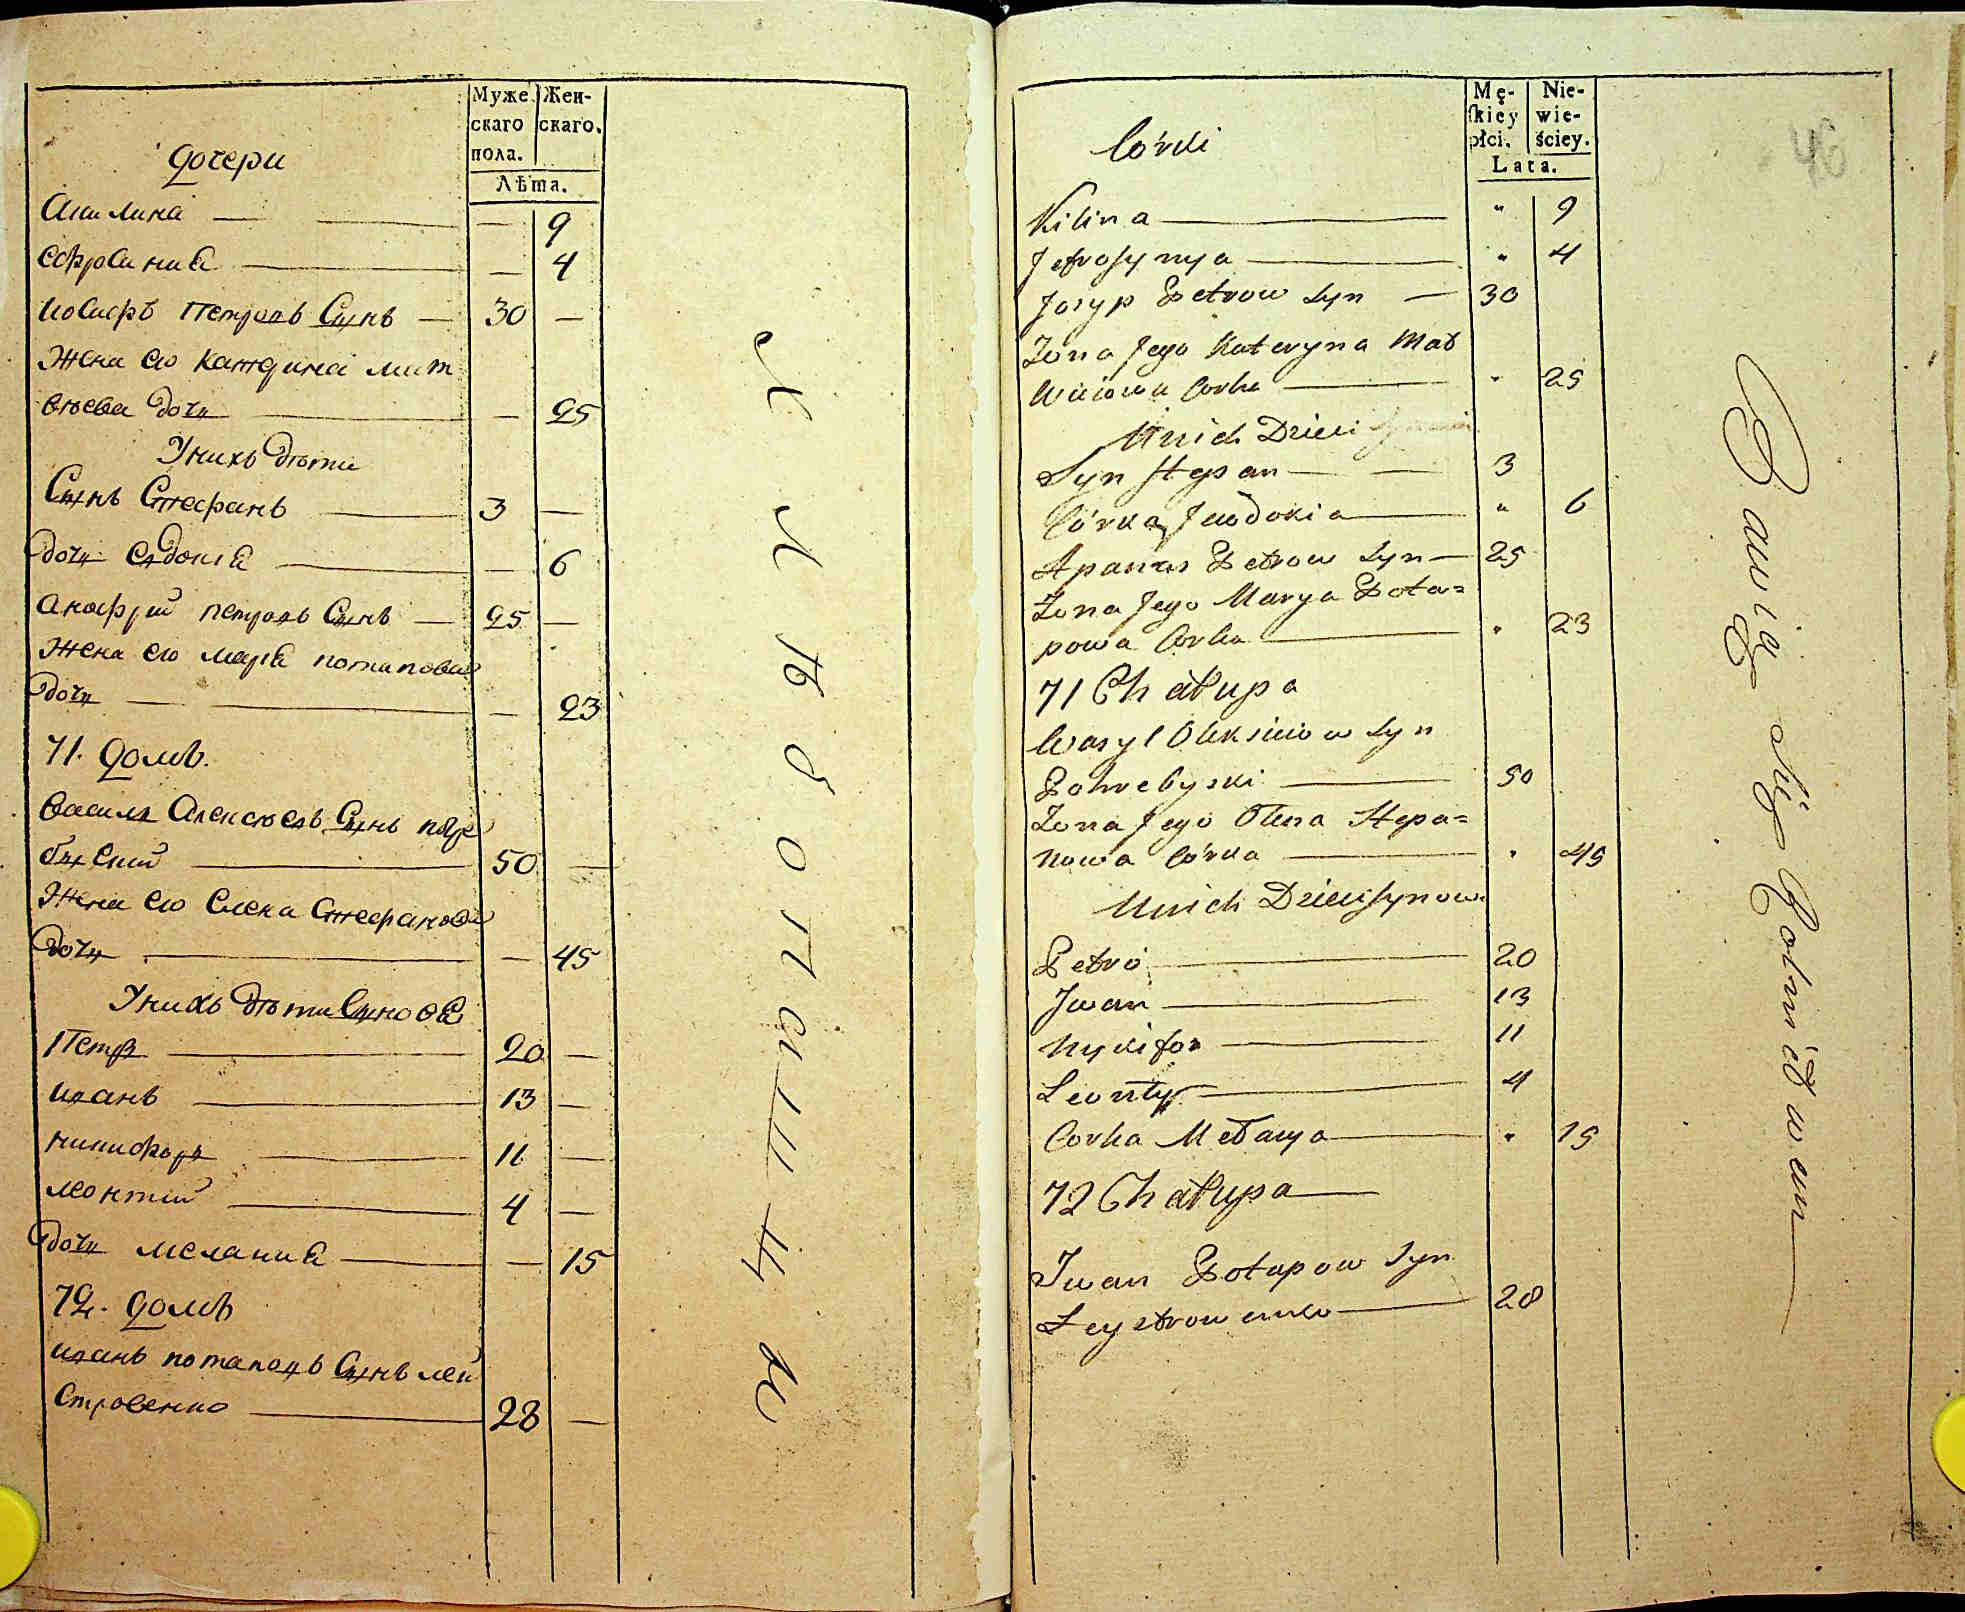 Муже
скаго
пола.
Жен-
скаго.
Лѣта.
дочери
Акилина — — 9
Ефросиния — — 4
Иосифъ Петровъ Сынъ — 30 —
Жена его Катерина Мат
вѣева дочь — — 25
У нихъ дѣти
Сынъ Стефанъ — 3 —
дочь Евдокия — — 6
Анофрий Петровъ Сынъ — 25 —
Жена его Мария Потапова
дочь — — 23
71. домъ.
Василь Алексѣевъ Сынъ погре
быский — 50 —
Жена его Елена Стефанова
дочь — — 45
У нихъ дѣти Сынова
Петръ — 20 —
Иванъ — 13 —
никифоръ — 11 —
леонтий — 4 —
дочь мелания — — 15
72. домъ
Иванъ потаповъ Сынъ леи
стровенко — 28 —
хлѣбопашцы
46
Mę-
skiey
płci.
Nie-
wie-
ściey.
Lata.
Córki
Kilina — " 9
Jefrosynya — " 4
Josyp Petrow syn — 30
Żona Jego Kateryna Mat
wiiowa Corka — " 25
Unich Dzieci
Syn Stepan — 3
Córka Jewdokia — " 6
Apanas Petrow Syn — 25
Żona Jego Marya Pota=
powa Corka — " 23
71 Chałupa
Wasyl Oleksiiow Syn
Pohrebyski — 50
Żona Jego Ołena Stepa=
nowa Córka — " 45
Unich Dzieci Synow
Petro — 20
Jwan — 13
Nykifor — 11
Leonty — 4
Corka Mełanya — " 15
72 Chałupa —
Jwan Potapow Syn
Leystrowenko — 28
Bawią się Rolnictwem